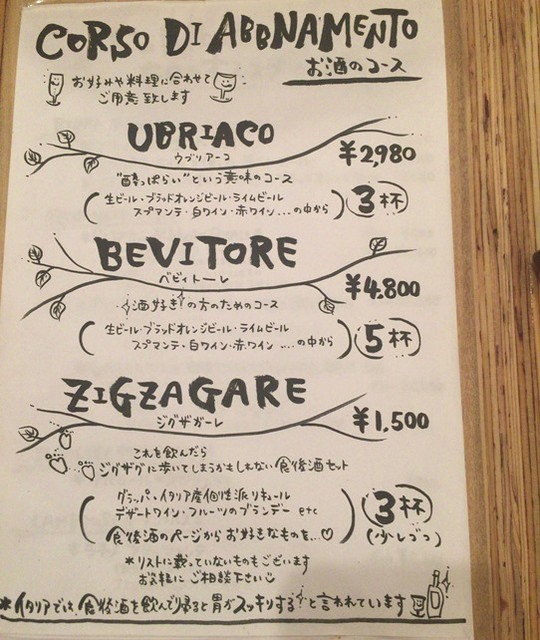 CORSO DI ABBNAMENTO
お酒のコース
お好みや料理に合わせて
ご用意致します
UBRIACO
ウブリアーコ
¥2,980
"酔っぱらい"という意味のコース
(生ビール・ブラッドオレンジビール・ライムビール
スプマンテ・白ワイン・赤ワイン…の中から)
3杯
BEVITORE
ベビィトーレ
¥4,800
酒好き!の方のためのコース
(生ビール・ブラッドオレンジビール・ライムビール
スプマンテ・白ワイン・赤ワイン …の中から)
5杯
ZIGZAGARE
ジグザガーレ
¥1,500
これを飲んだら
ジグザグに歩いてしまうかもしれない食後酒セット
(グラッパ・イタリア産個性派リキュール
デザートワイン・フルーツのブランデー etc
食後酒のページからお好きなものを…♡)
3杯
(少しづつ)
*リストに載っていないものもございます
お気軽にご相談下さい
*イタリアでは、食後酒を飲んで帰ると胃がスッキリする!と言われています